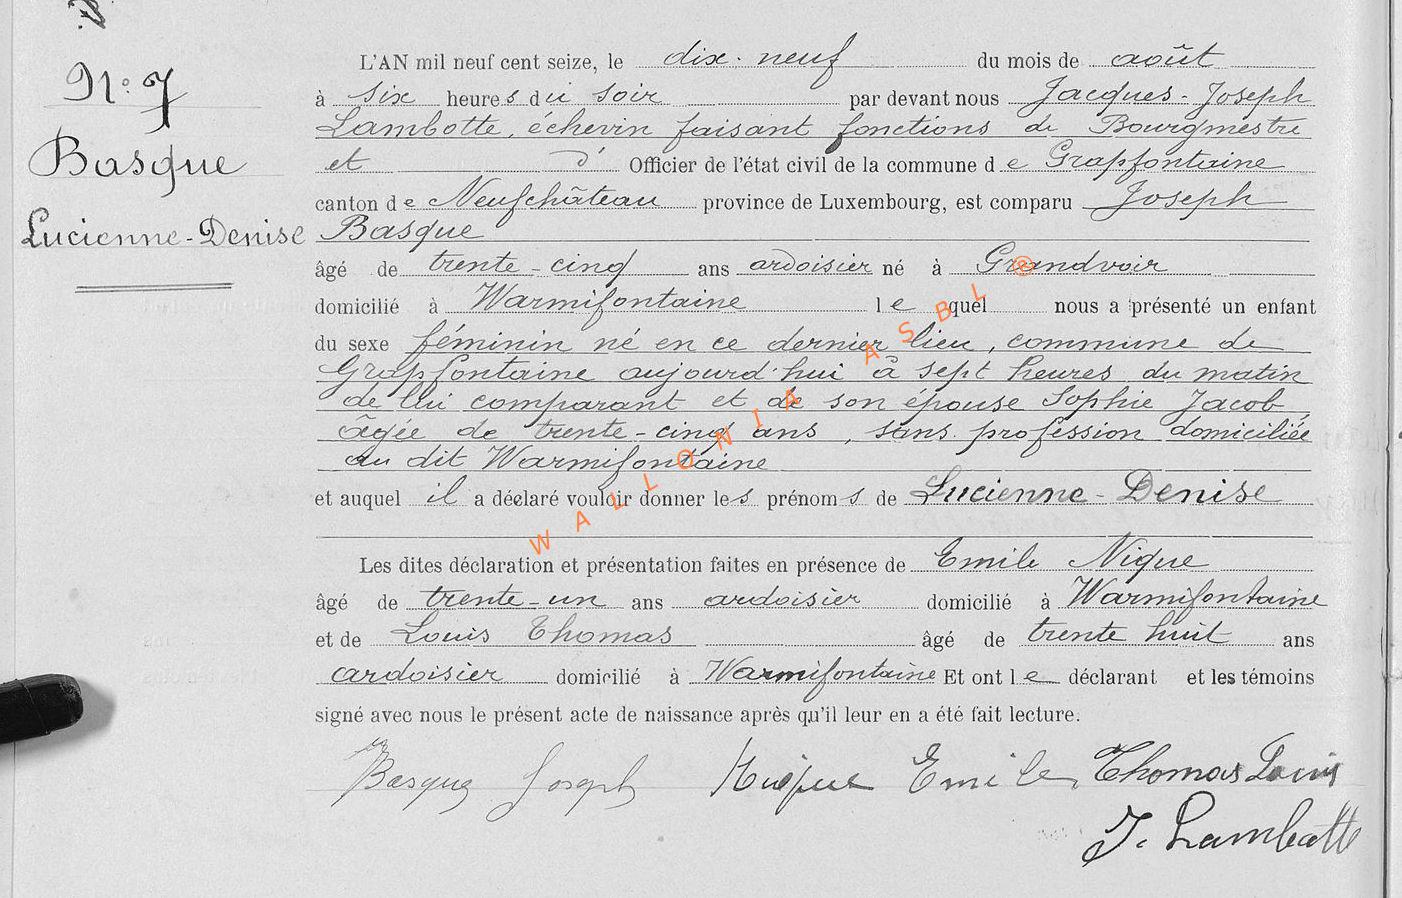 N° 7
Basque
Lucienne-Denise
L'AN mil neuf cent seize, le dix-neuf du mois de août
à six heures du soir par devant nous Jacques-Joseph
Lambotte, échevin faisant fonctions de Bourgmestre
et d' Officier de l'état civil de la commune de Grapfontaine
canton de Neufchâteau province de Luxembourg, est comparu Joseph
Basque
âgé de trente-cinq ans ardoisier né à Grandvoir
domicilié à Warmifontaine le quel nous a présenté un enfant
du sexe féminin né en ce dernier lieu, commune de
Grapfontaine aujourd'hui à sept heures du matin
de lui comparant et de son épouse Sophie Jacob,
âgée de trente-cinq ans, sans profession domiciliée
au dit Warmifontaine
et auquel il a déclaré vouloir donner les prénoms de Lucienne-Denise
Les dites déclaration et présentation faites en présence de Emile Nique
âgé de trente-un ans ardoisier domicilié à Warmifontaine
et de Louis Thomas âgé de trente huit ans
ardoisier domicilié à Warmifontaine Et ont le déclarant et les témoins
signé avec nous le présent acte de naissance après qu'il leur en a été fait lecture.
Basque Joseph Emile Thomas Louis
J. Lambotte
WALLONIA ASBL ®